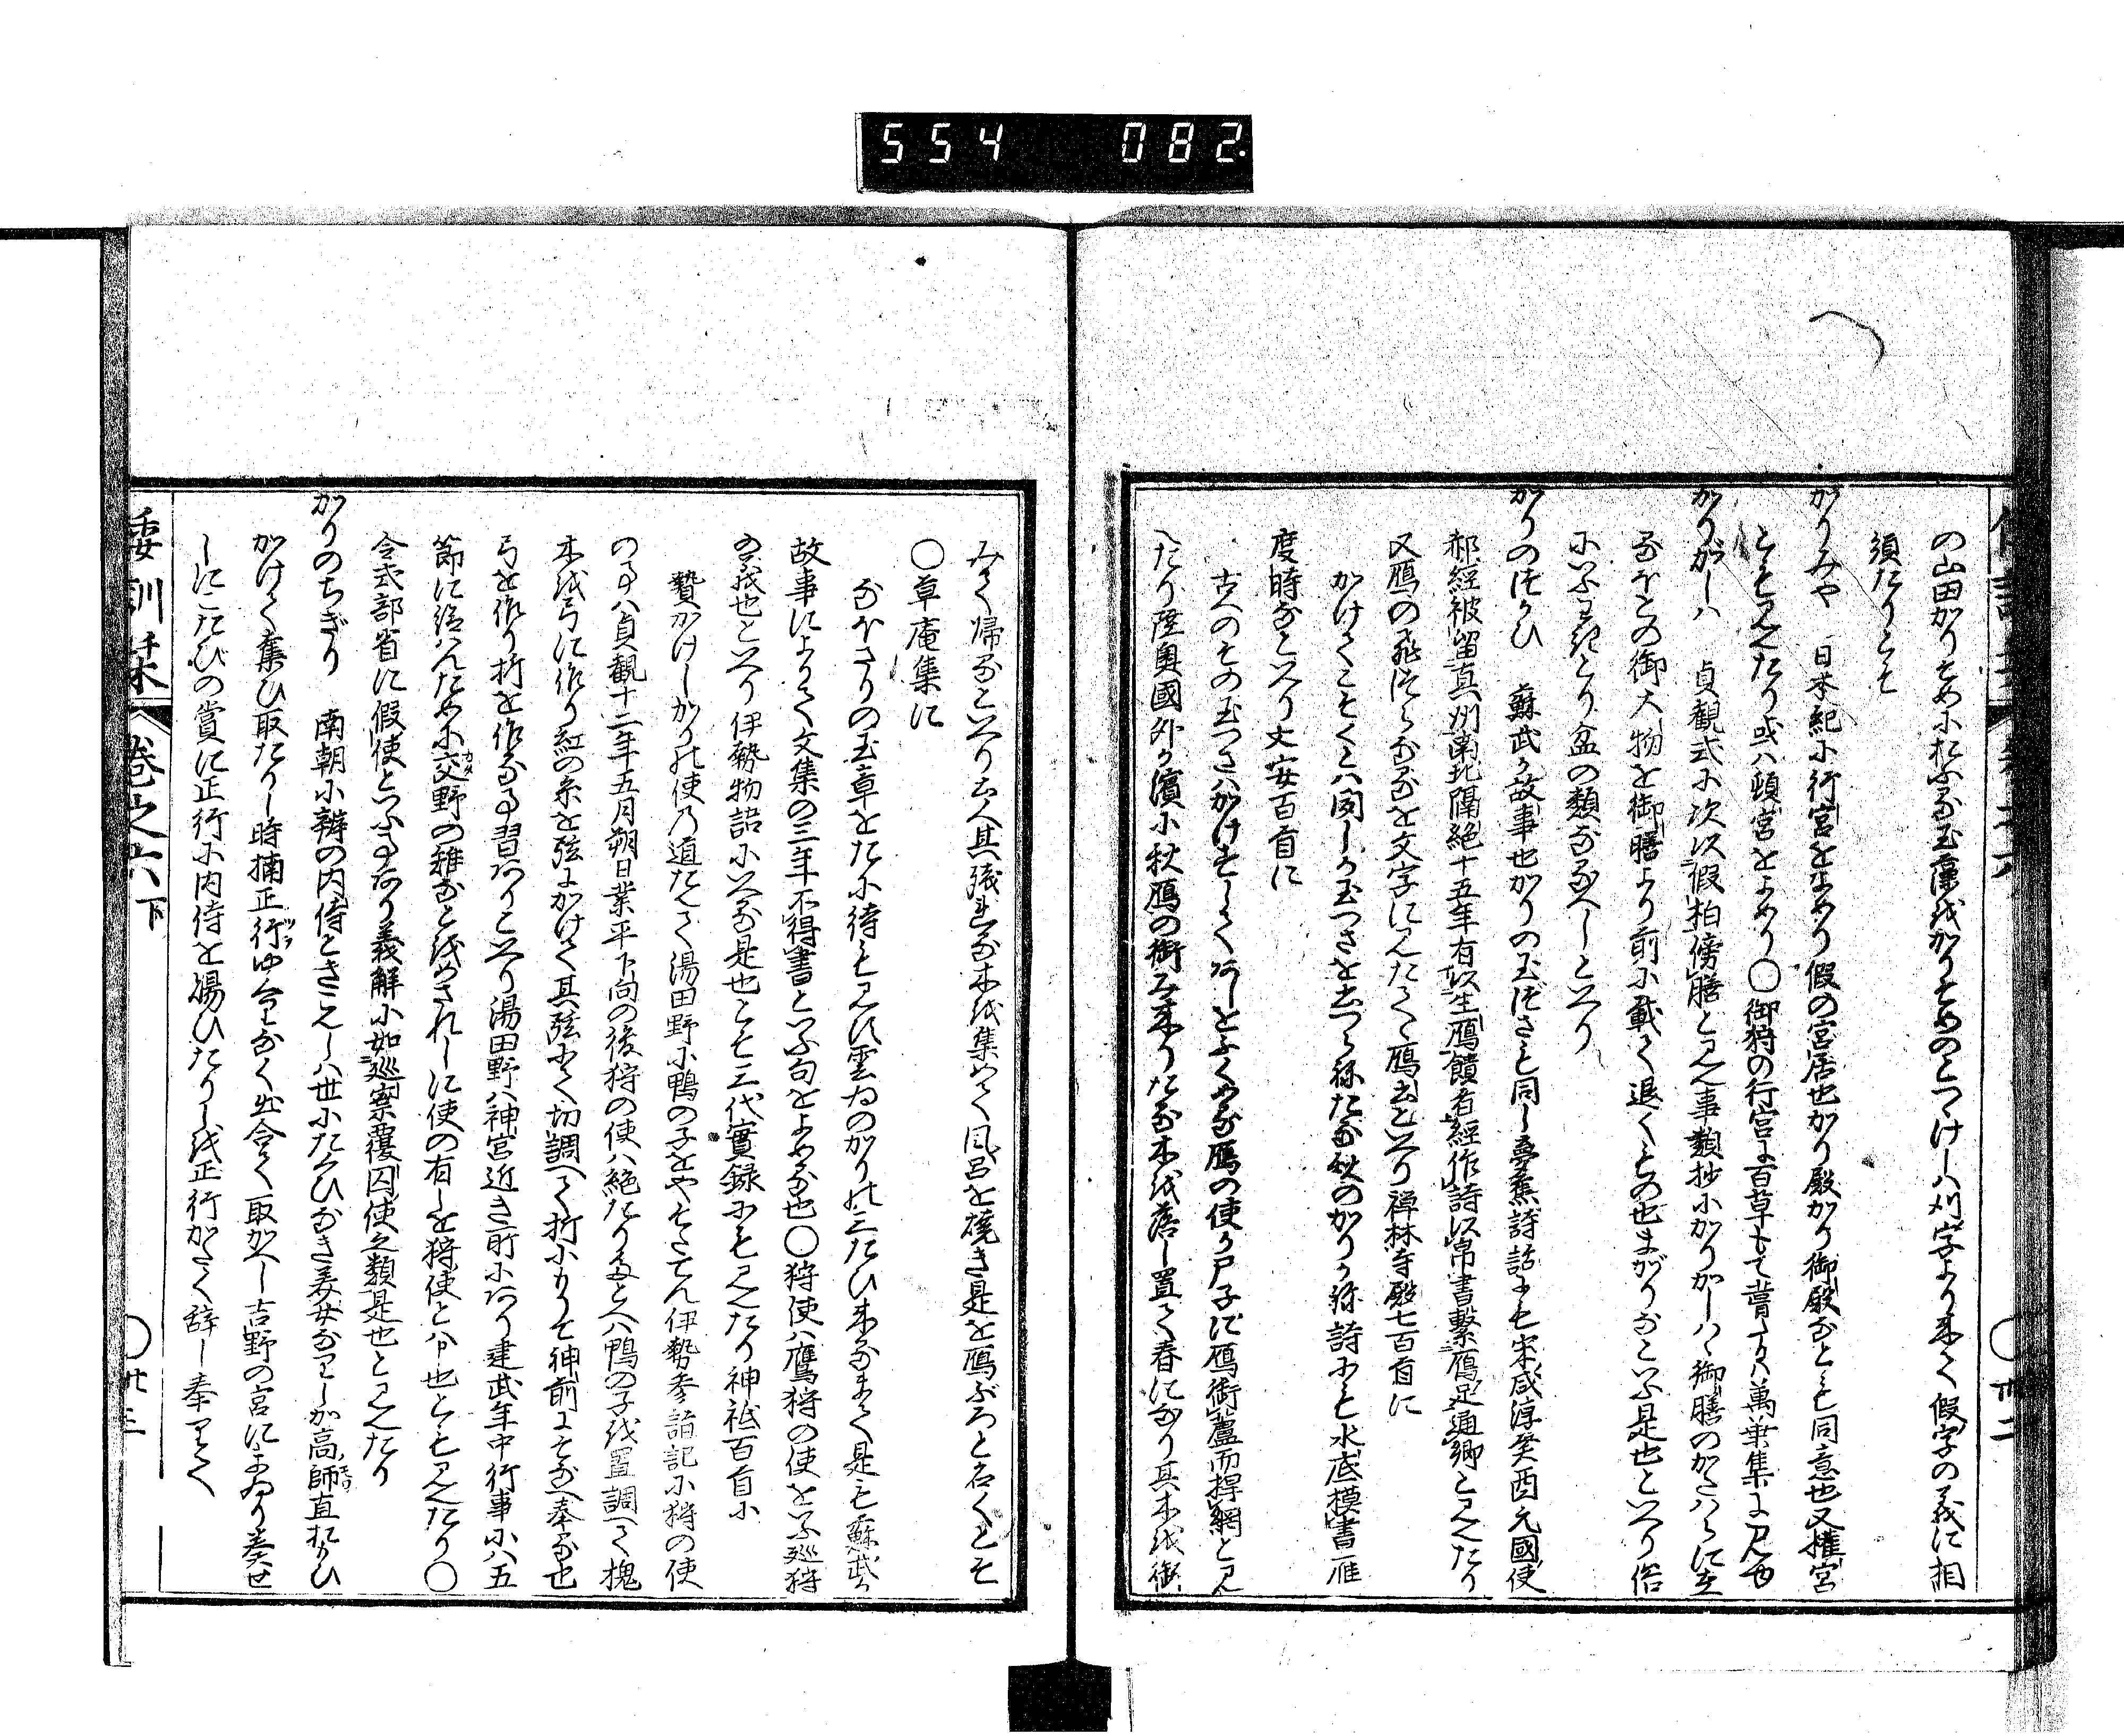 554 082
の山田かりそめにおふる玉藻をかりそめのとつけしハ刈字より来て假字の義に相
須たりとそ
かりみや 日本紀に行宮をよめり假の宮居也かり殿かり御殿なとも同意也又權宮
とも見えたり或ハ頓宮をよめり○御狩の行宮よ百草もて葺く萬葉集に見ゆ
かりがしハ 貞観式に次以假柏傍膳と見え事類抄にかりかしハヽ御膳のかたハらに立
なおとの御大物を御膳より前に載て退くもの也まがりなといふ是也といへり俗
にいふとり盆の類なるへしといへり
かりのつかひ 蘇武か故事也かりの玉づさも同し蕉詩話にも宋咸淳癸酉元國使
郝經被留真州南北隔絶十五年有以生鴈饋者經作詩以帛書繫鴈足通郷と見えたり
又鴈の飛つらなるを文字に見たてヽ鴈書といへり禅林寺殿七百首に
かけてこそくとハ問しか玉つさを書つらねたる秋のかりか袮詩にも水底模書雁
度時なといへり丈安百首に
古へのその玉つさハかけすしてあしをふくめる鴈の使か尸子に鴈銜蘆而捍網と見
へたり陸奥國外か濱に秋鴈の銜み来りたる木を落し置て春になり其木を銜
みて帰るといへり土人其残れる木を集めて風呂を焼き是を鴈ぶろと名くとそ
○草庵集に
なほさりの玉章をたに待も見す雲ゐのかりハ三たひ来るまて是も蘇武か
故事によりて文集の三年不得書といふ句をよめる也○狩使ハ鷹狩の使をいふ巡狩
の義也といへり伊勢物語にいへる是也とそ三代實録にも見えたり神祇百首に
贄かけしかりの使乃道たえて湯田野に鴨の子をやそたてん伊勢参詣記に狩の使
の事ハ貞観十二年五月朔日業平下向の後狩の使ハ絶たりたとへハ鴨の子を置調へて槐
木を弓に作り紅の糸を弦にかけて其弦にて切調へて折にもりて神前にそなへ奉る也
弓を作り折を作る事習ありといへり湯田野ハ神宮近き所にあり建武年中行事に八五
節に給ハんために交野の雉なとをめされしに使の有しを狩使とハ申也とも見えたり○
令式部省に假使といふ事あり義解に如巡察覆囚使之類是也と見えたり
かりのちぎり 南朝に辨の内侍ときこえしハ世にたくひなき美女なりしか高師直おもひ
かけて奪ひ取たりし時楠正行ゆくりなく出会て取かへし吉野の宮にまゐり奏せ
しにこたびの賞に正行に内侍を賜ひたりしを正行かたく辞し奉りて
倭訓栞 巻之六下 ○卅三
○卅二